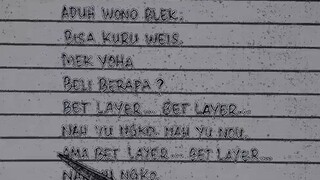 ADUH WONO BLEK.
BISA KURU WEIS.
MEK YOHA
BELI BERAPA ?
BET LAYER.... BET LAYER....
NAH YU NGKO. NAH YU NOU.
AMA BET LAYER.... BET LAYER....
NAH YU NGKO.